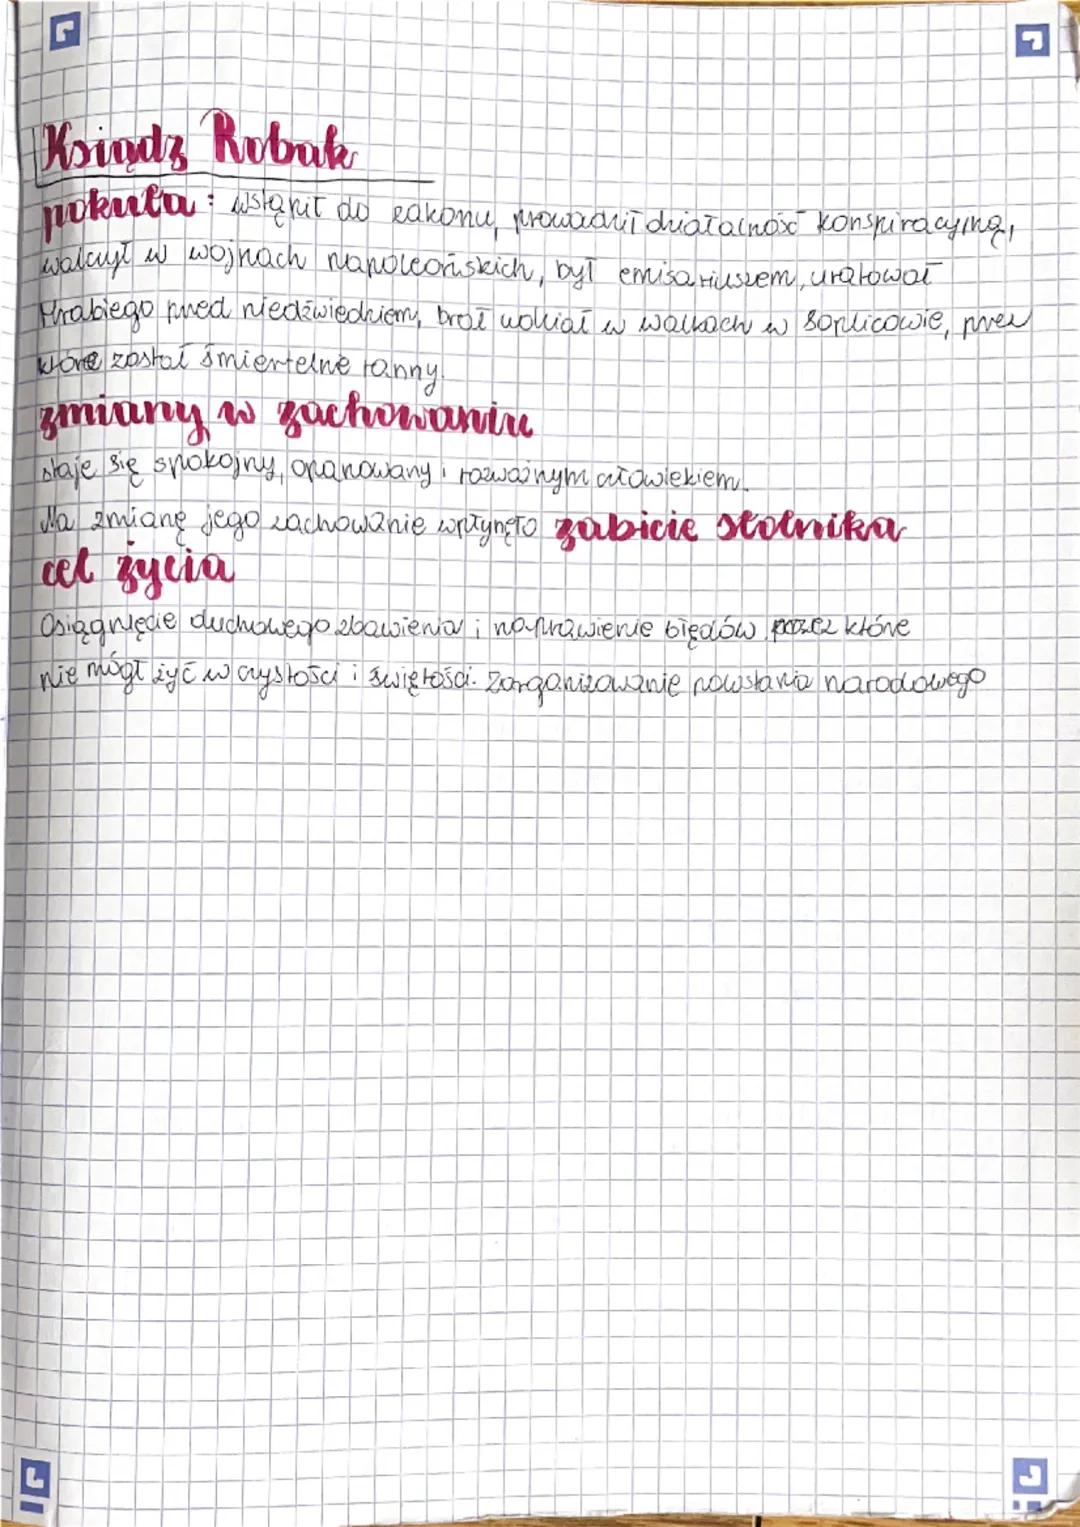 Ksiądz Robak
pokuta: wstąpił do zakonu, prowadził działalność konspiracyjną,
walczył w wojnach napoleońskich, był emisariuszem, uratował
Hrabiego przed niedźwiedziem, brał udział w walkach w Soplicowie, przez
które został śmiertelne ranny.
zmiany w zachowaniu
staje się spokojny, opanowany i rozważnym człowiekiem.
Na zmianę jego zachowanie wpłynęło zabicie stolnika
cel życia
Osiągnięcie duchowego zbawienia i naprawienie błędów przez które
nie mógł żyć w czystości i świętości. Zorganizowanie powstania narodowego